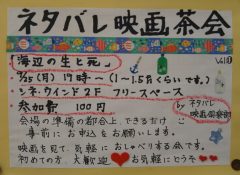 ネタバレ映画茶会
Vol.10
「海辺の生と死」
(月) 17時〜 (1〜1.5hくらいです。)
シネ・ウインド2F フリースペース
参加費 100円
by ネタバレ
映画倶楽部
会場の準備の都合上、できるだけ
事前にお申込をお願いします。
映画を見て、気軽におしゃべりする会です。
初めての方、大歓迎♥お気軽にどうぞ